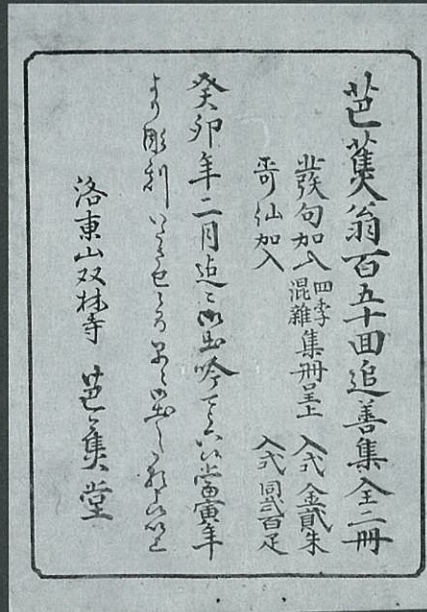 芭蕉翁百五十回追善集全二冊
發句加入 四季混雜 集冊呈上 入式 金貳朱
哥仙加入 入式 同弐百疋
癸卯年二月迄ニ御出吟 當寅年
より彫刻いたさせ
洛東山双林寺 芭蕉堂